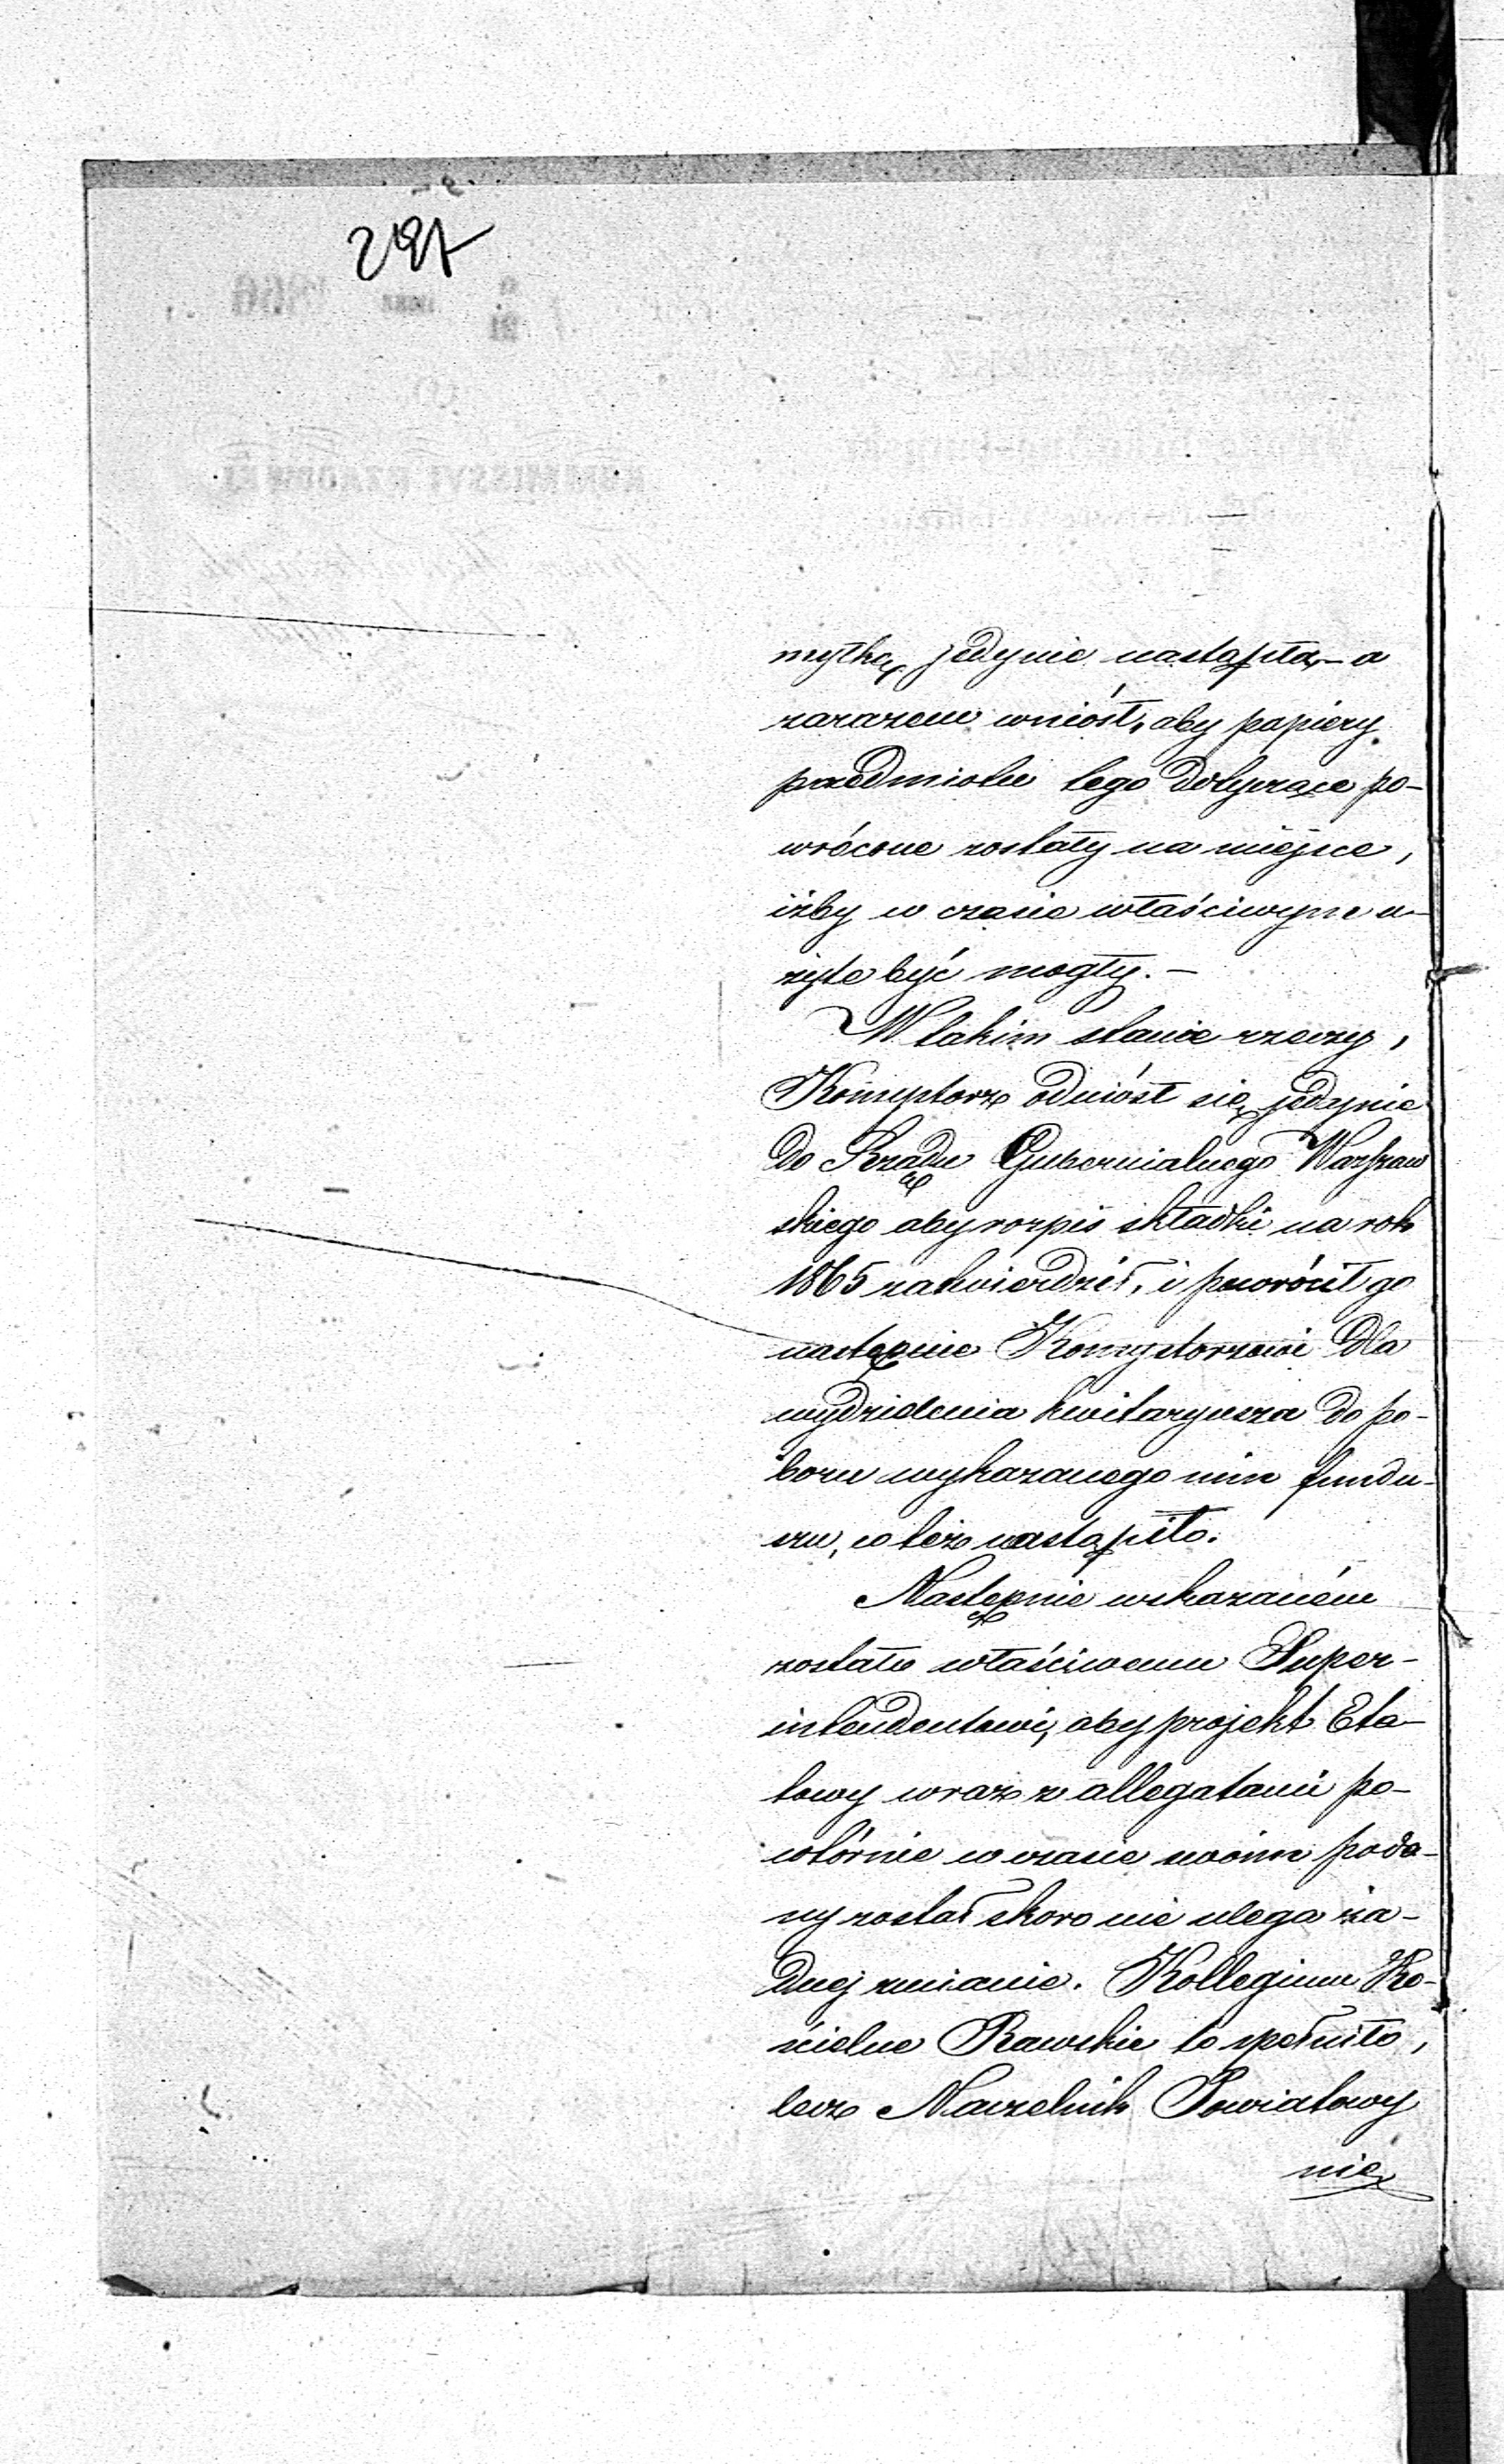 297
myłkę jedynie nastąpiła, – a
zarazem wniósł, aby papiery
przedmiotu tego dotyczące po-
wrócone zostały na miejsce,
iżby w czasie właściwym u-
żyte być mogły. –
W takim stanie rzeczy,
Konsystorz odniósł się jedynie
do Rządu Gubernialnego Warszaw
skiego aby rozpis składki na rok
1865 zatwierdził, i powrócił go
następnie Konsystorzowi dla
wydzielenia kwitaryusza do po-
boru wykazanego nim fundu-
szu, co też nastąpiło.
Następnie wskazaném
zostało właściwemu Super-
intendentowi, aby projekt Eta-
towy wraz z allegatami po-
wtórnie w czasie swoim poda-
ny został skoro nie ulega ża-
dnej zmianie. Kollegium Ko-
ścielne Rawskie to spełniło,
lecz Naczelnik Powiatowy
nie